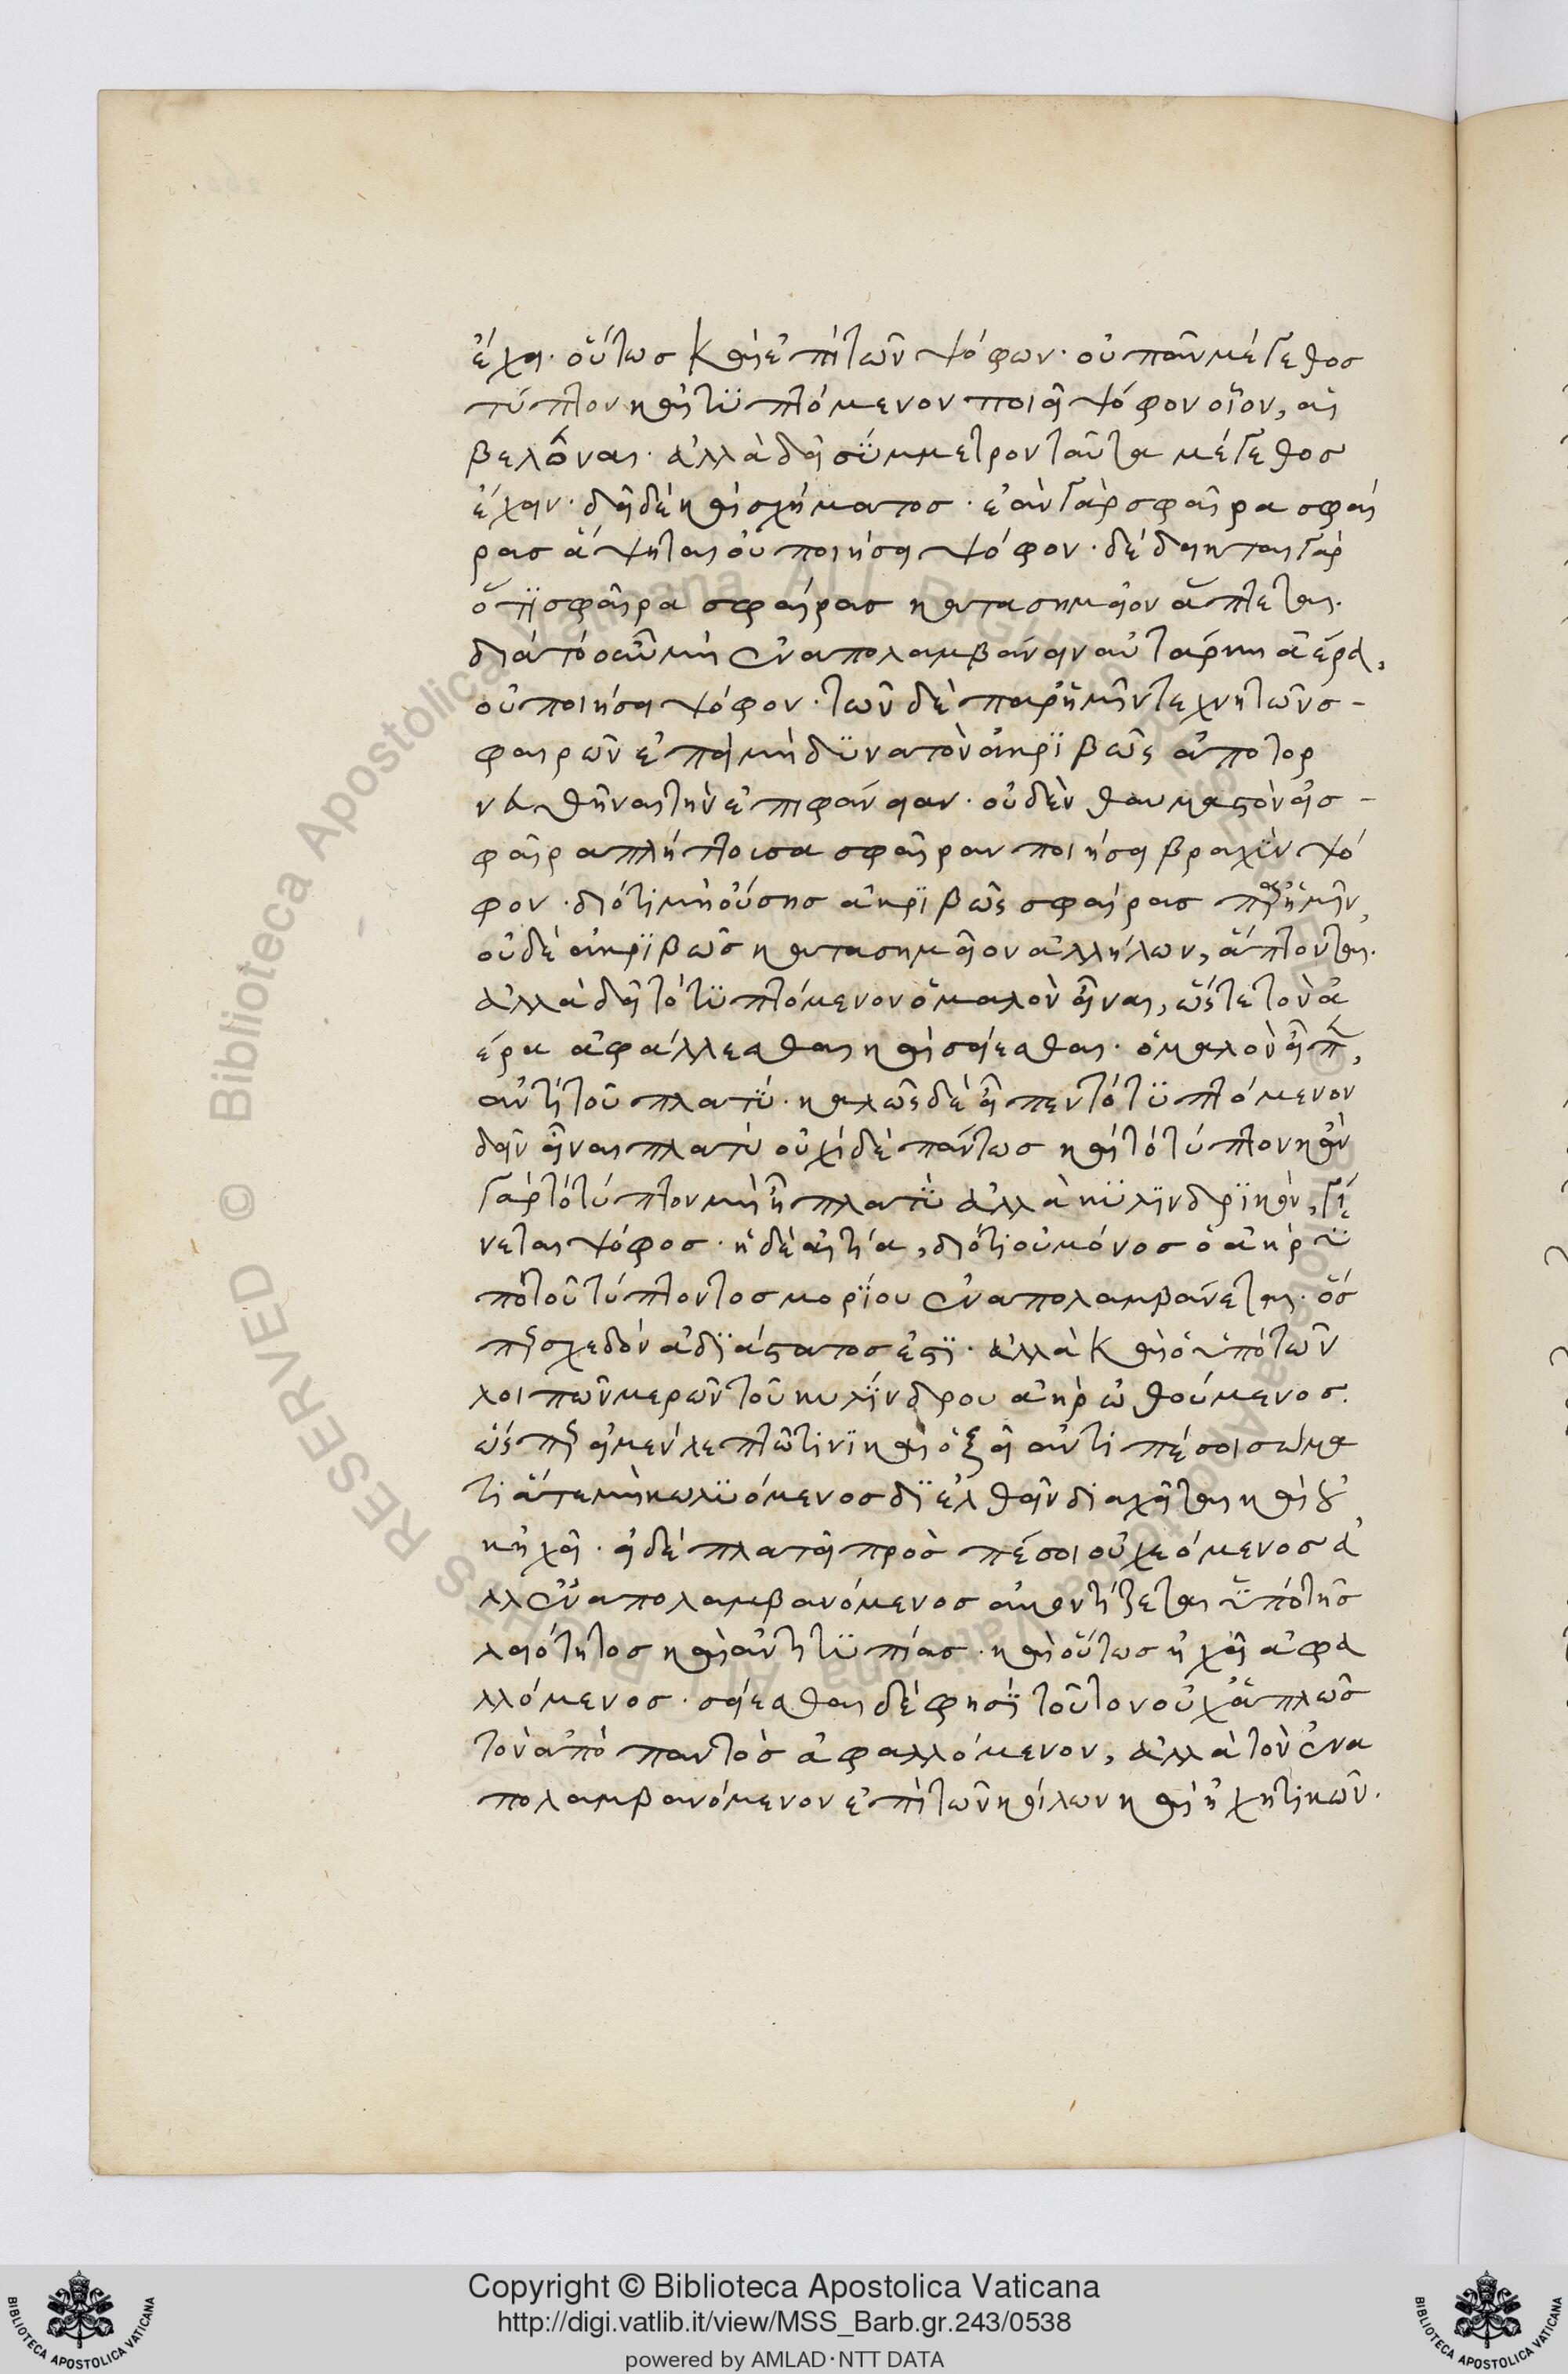 ἔχει· οὕτως καὶ ἐπὶ τῶν ψόφων· οὐ πᾶν μέγεθος
τύπτον καὶ τϋπτόμενον ποιεῖ ψόφον οἷον, αἱ
βελόναι· ἀλλὰ δεῖ σϋμμετρον ταῦτα μέγεθος
ἔχειν· δεῖ δὲ καὶ σχήματος· ἐὰν γὰρ σφαῖρα σφαί
ρας ἅψηται οὐ ποιήσει ψόφον· δέδεικται γὰρ
ὅτϊ σφαῖρα σφαίρας κατα σημεῖον ἅπτεται·
διὰ τὸ οὖν μὴ ἐναπολαμβάνειν αὐτάρκη ἀέρα,
οὐ ποιήσει ψόφον· τῶν δὲ παρ' ἡμῖν τεχνητῶν σ-
φαιρῶν ἐπεὶ μὴ δϋνατὸν ἀκρϊβῶς ἀποτορ
νευθῆναι τὴν ἐπιφάνειαν· οὐδὲν θαυμαστὸν εἰ σ-
φαῖρα πλήττουσα σφαῖραν ποιήσει βραχὺν ψό
φον· διότι μὴ οὔσης ἀκρϊβῶς σφαίρας παρ' ἡμῖν,
οὐδὲ ἀκρϊβῶς κατα σημεῖον ἀλλήλων, ἅπτονται·
ἀλλὰ δεῖ τὸ τϋπτόμενον ὁμαλὸν εἶναι, ὥστε τὸν ἀ
έρα ἀφάλλεσθαι καὶ σείεσθαι· ὁμαλὸν εἶπε,
ἀντὶ τοῦ πλατϋ· καλῶς δὲ εἶπεν τὸ τϋπτόμενον
δεῖν εἶναι πλατὺ οὐχὶ δὲ πάντως καὶ τὸ τύπτον κἂν
γὰρ τὸ τύπτον μὴ ἦ πλατϋ ἀλλὰ κϋλϊνδρϊκὸν, γί
νεται ψόφος· ἡ δὲ αἰτία, διότι οὐ μόνος ὁ ἀὴρ ϋ
πὸ τοῦ τύπτοντος μορϊου ἐναπολαμβάνεται· ὅσ
περ σχεδὸν ἀδϊάστατος ἐστϊ· ἀλλὰ καὶ ὁ ὑπὸ τῶν
λοιπῶν μερῶν τοῦ κυλϊνδρου ἀὴρ ὠθούμενος·
ὥσπερ εἰ μὲν λεπτῶ τινϊ καὶ ὀξεῖ ἀντιπέσοι σώμα
τι ἅτε μὴ κωλϋόμενος δϊελθεῖν διαχεῖται καὶ οὐ
κ ἠχεῖ· εἰ δὲ πλατεῖ προσπέσοι οὐ χεόμενος ἀ
λλ' ἐναπολαμβανόμενος ἀκοντίζεται ϋπὸ τῆς
λειότητος καὶ ἀντιτϋπίας· καὶ οὕτως ἠχεῖ ἀφα
λλόμενος· σείεσθαι δέ φησϊ τοῦτον οὐχ ἁπλῶς
τὸν ἀπὸ παντὸς ἀφαλλόμενον, ἀλλὰ τὸν ἐνα
πολαμβανόμενον ἐπὶ τῶν κοίλων καὶ ἠχητικῶν·
Copyright © Biblioteca Apostolica Vaticana
http://digi.vatlib.it/view/MSS_Barb.gr.243/0538
powered by AMLAD·NTT DATA